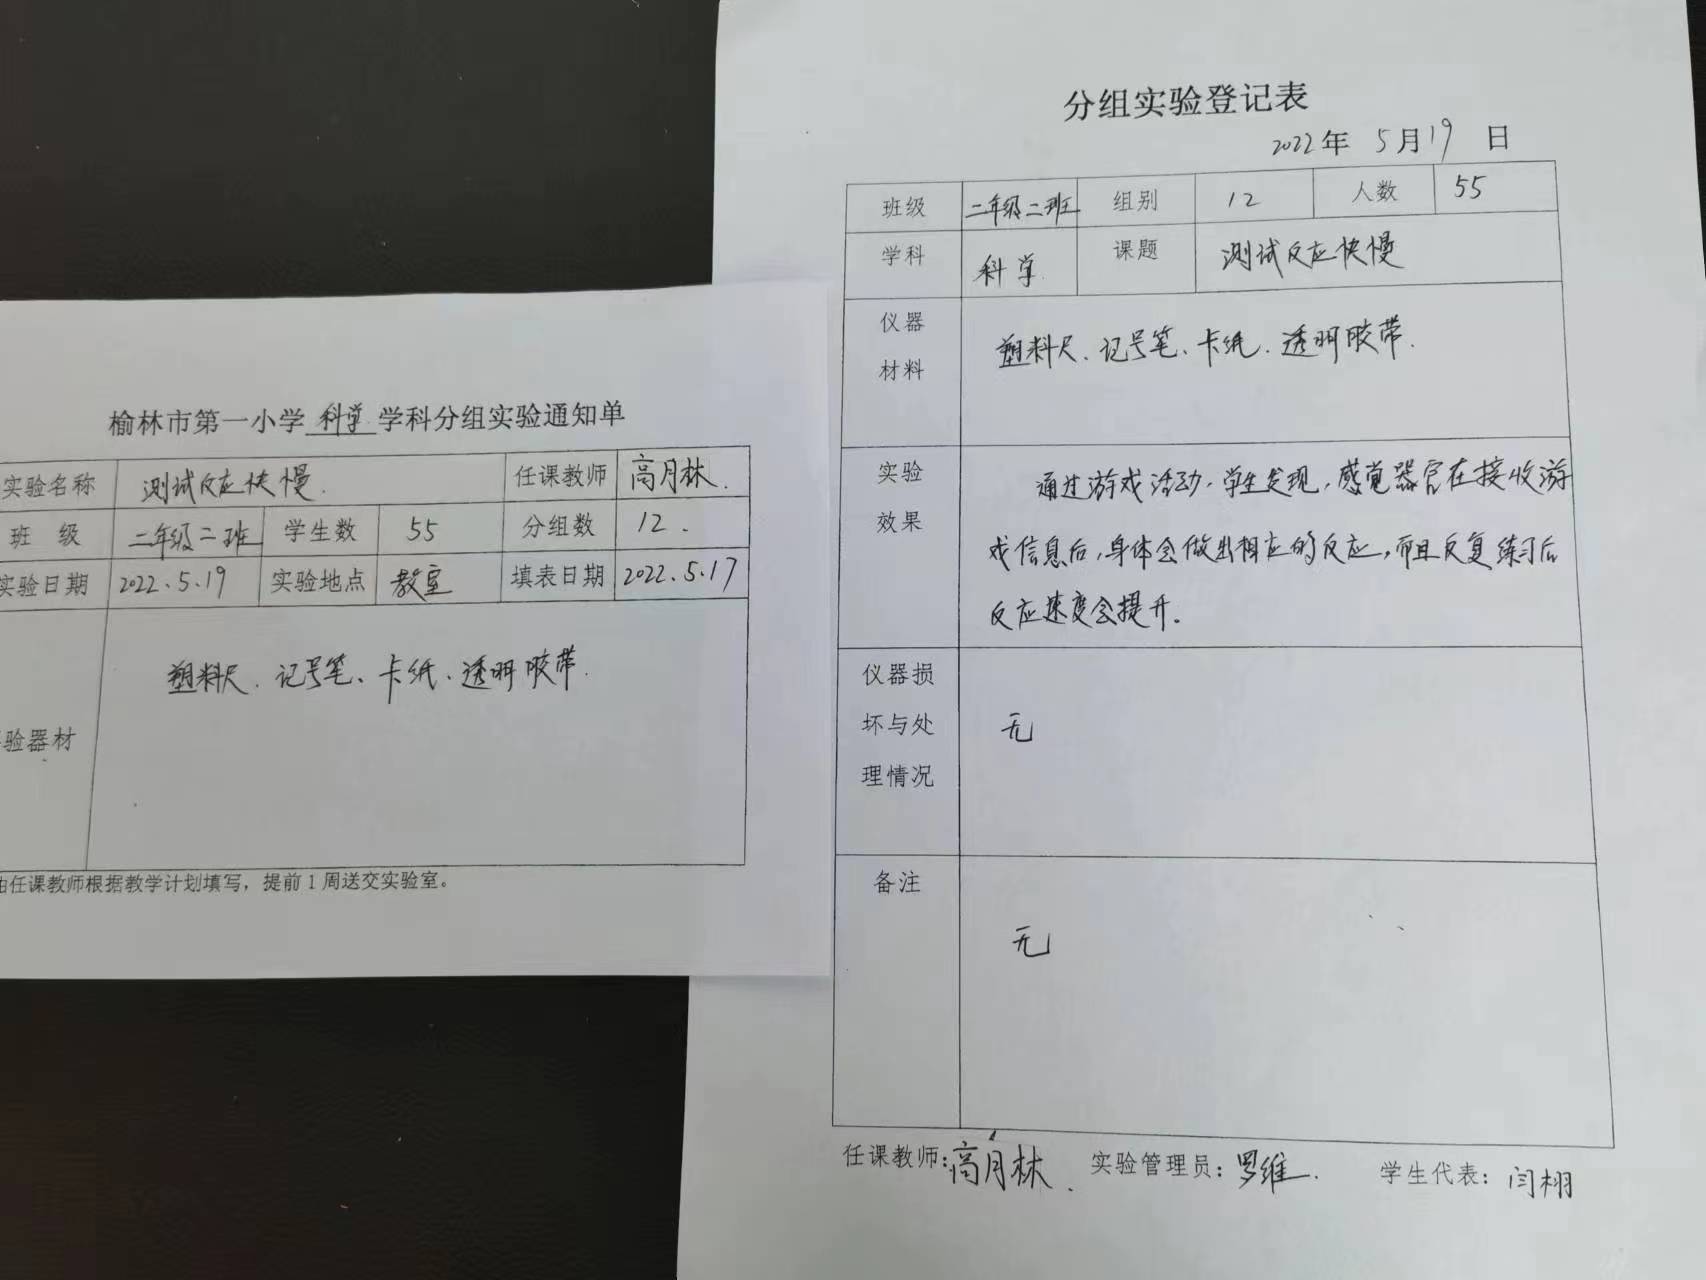 榆林市第一小学 科学 学科分组实验通知单
实验名称 测试反应快慢. 任课教师 高月林.
班 级 二年级二班 学生数 55 分组数 12.
实验日期 2022.5.19 实验地点 教室 填表日期 2022.5.17
验器材 塑料尺、记号笔、卡纸、透明胶带.
由任课教师根据教学计划填写，提前1周送交实验室。
分组实验登记表
2022年 5月19日
班级 二年级二班 组别 12 人数 55
学科 科学 课题 测试反应快慢
仪器
材料
塑料尺、记号笔、卡纸、透明胶带.
实验
效果
通过游戏活动,学生发现,感觉器官在接收游
戏信息后,身体会做出相应的反应,而且反复练习后
反应速度会提升。
仪器损
坏与处
理情况
无
备注
无
任课教师:高月林. 实验管理员:罗维. 学生代表:闫栩